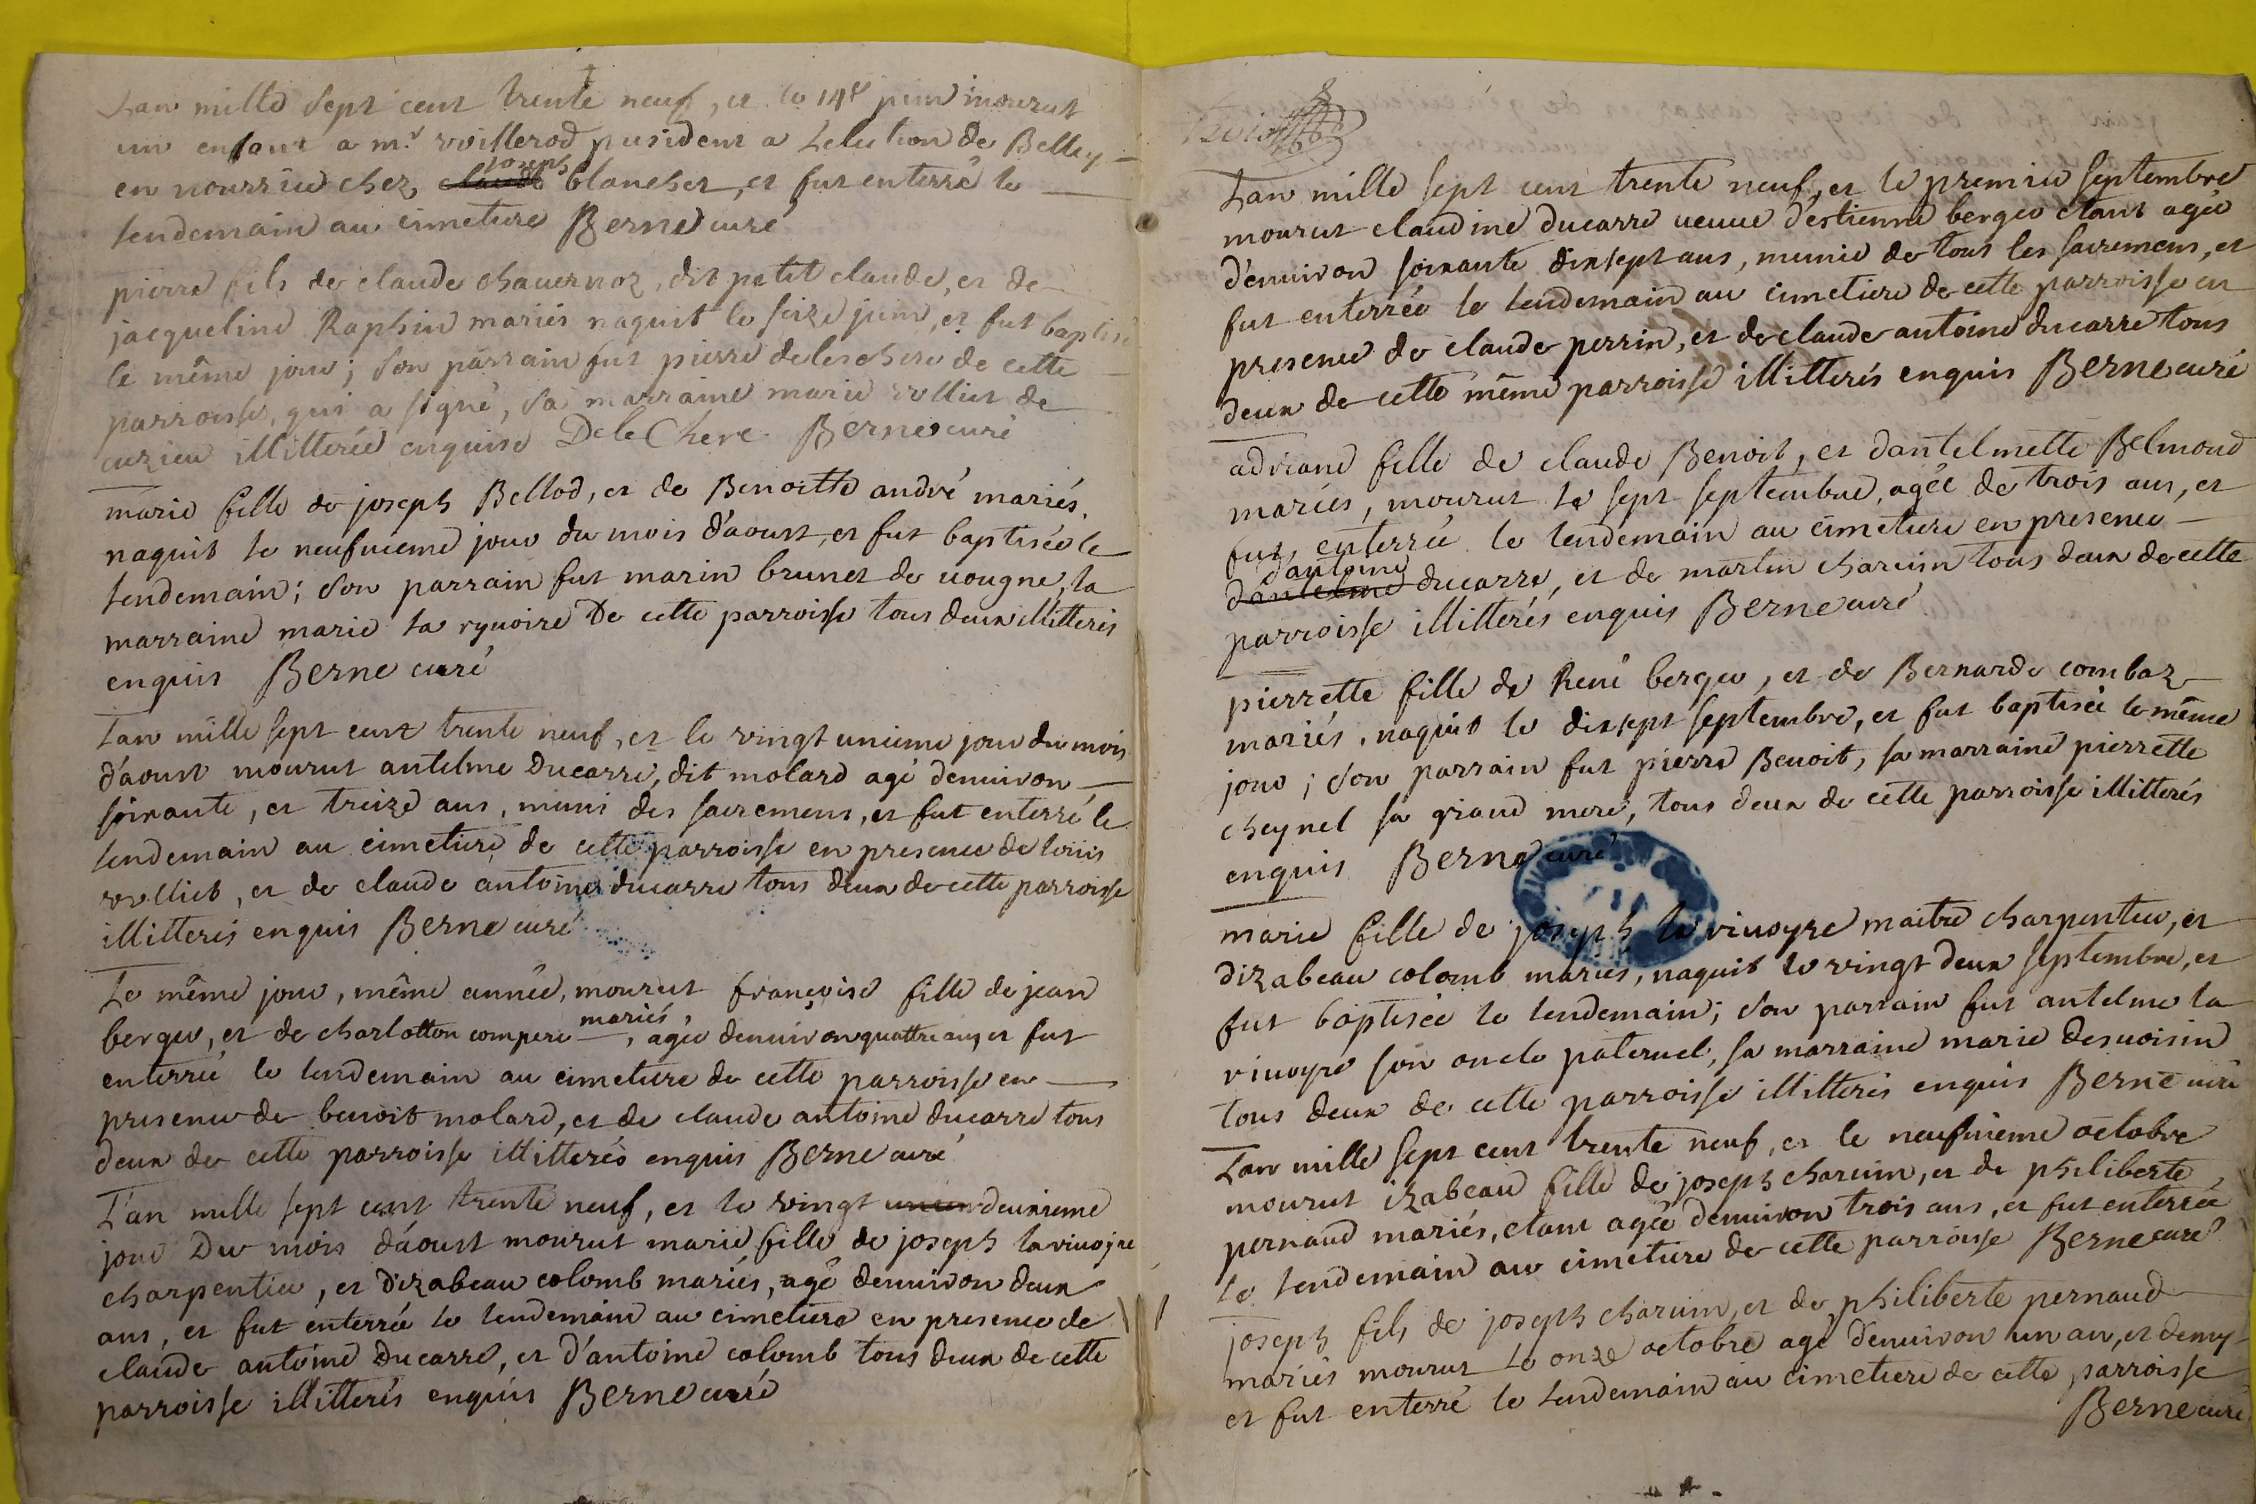 Lan mille sept cent trente neuf, et le 14e juin mourut
un enfant a mr. president a Lelection de Belley
en nourrice chez joseph blanchet, et fut enterré le
lendemain au cimetiere Berne curé
pierre fils de claude chavernoz, dit petit claude, et de
jacqueline Raphin mariés naquit le seize juin, et fut baptisé
le même jour; son parrain fut pierre delechere de cette
parroisse, qui a signé, sa marraine marie rolliet de
cuzieu illitterée enquise DeleChere Berne curé
marie fille de joseph Bellod, et de Benoitte andré mariés,
naquit le neufvieme jour du mois d'aoust, et fut baptisée le
lendemain; son parrain fut marin brunet de vougne, la
marraine marie la ryvoire De cette parroisse tous deux illitterés
enquis Berne curé
Lan mille sept cent trente neuf, et le vingt unieme jour du mois
d'aoust mourut antelme Ducarre, dit molard agé denviron
soixante, et treize ans, muni des sacremens, et fut enterré le
lendemain au cimetiere de cette parroisse en presence de louis
rolliet, et de claude antoine ducarre tous deux de cette parroisse
illitterés enquis Berne curé
Le même jour, même année, mourut françoise fille de jean
berger, et de charlotton compere mariés, agée denviron quattre ans, et fut
enterrée le lendemain au cimetiere de cette parroisse en
presence de benoit molard, et de claude antoine ducarre tous
deux de cette parroisse illitterés enquis Berne curé
L'an mille sept cent trente neuf, et le vingt deuxieme
jour Du mois d'áoust mourut marie fille de joseph la rivoyre
charpentier, et d'izabeau colomb mariés, agé denviron deux
ans, et fut enterrée le lendemain au cimetiere en presence de
claude antoine Ducarre, et d'antoine colomb tous deux de cette
parroisse illitterés enquis Berne curé
Lan mille sept cent trente neuf, et le premier septembre
mourut claudine ducarre veuve d'estienne berger etant agée
d'environ soixante dixsept ans, munie de tous les sacremens, et
fut enterrée le lendemain au cimetiere de cette parroisse en
presence de claude perrin, et de claude antoine ducarre tous
deux de cette même parroisse illitterés enquis Berne curé
adriane fille de claude Benoit, et dantelmette Belmond
mariés, mourut le sept septembre, agée de trois ans, et
fut enterrée le lendemain au cimetiere en presence
d'antoine
dantelme ducarre, et de martin charvin tous deux de cette
parroisse illitterés enquis Berne curé
pierrette fille de René berger, et de Bernarde combaz
mariés, naquit le dixsept septembre, et fut baptisée le même
jour; son parrain fut pierre Benoit, sa marraine pierrette
cheynel sa grand mere, tous deux de cette parroisse illitterés
enquis Berne curé
marie fille de joseph la rivoyre maitre charpentier, et
dizabeau colomb mariés, naquit le vingt deux septembre, et
fut baptisée le lendemain; son parrain fut antelme la
rivoyre son oncle paternel, sa marraine marie desvoisin
tous deux de cette parroisse illitterés enquis Berne curé
Lan mille sept cent trente neuf, et le neufvieme octobre
mourut izabeau fille de joseph charvin, et de philiberte
pernaud mariés, etant agée denviron trois ans, et fut enterrée
le lendemain au cimetiere de cette parroisse Berne curé
joseph fils de joseph charvin, et de philiberte pernaud
mariés mourut le onze octobre agé d'environ un an, et demy
et fut enterré le lendemain au cimetiere de cette parroisse
Berne curé